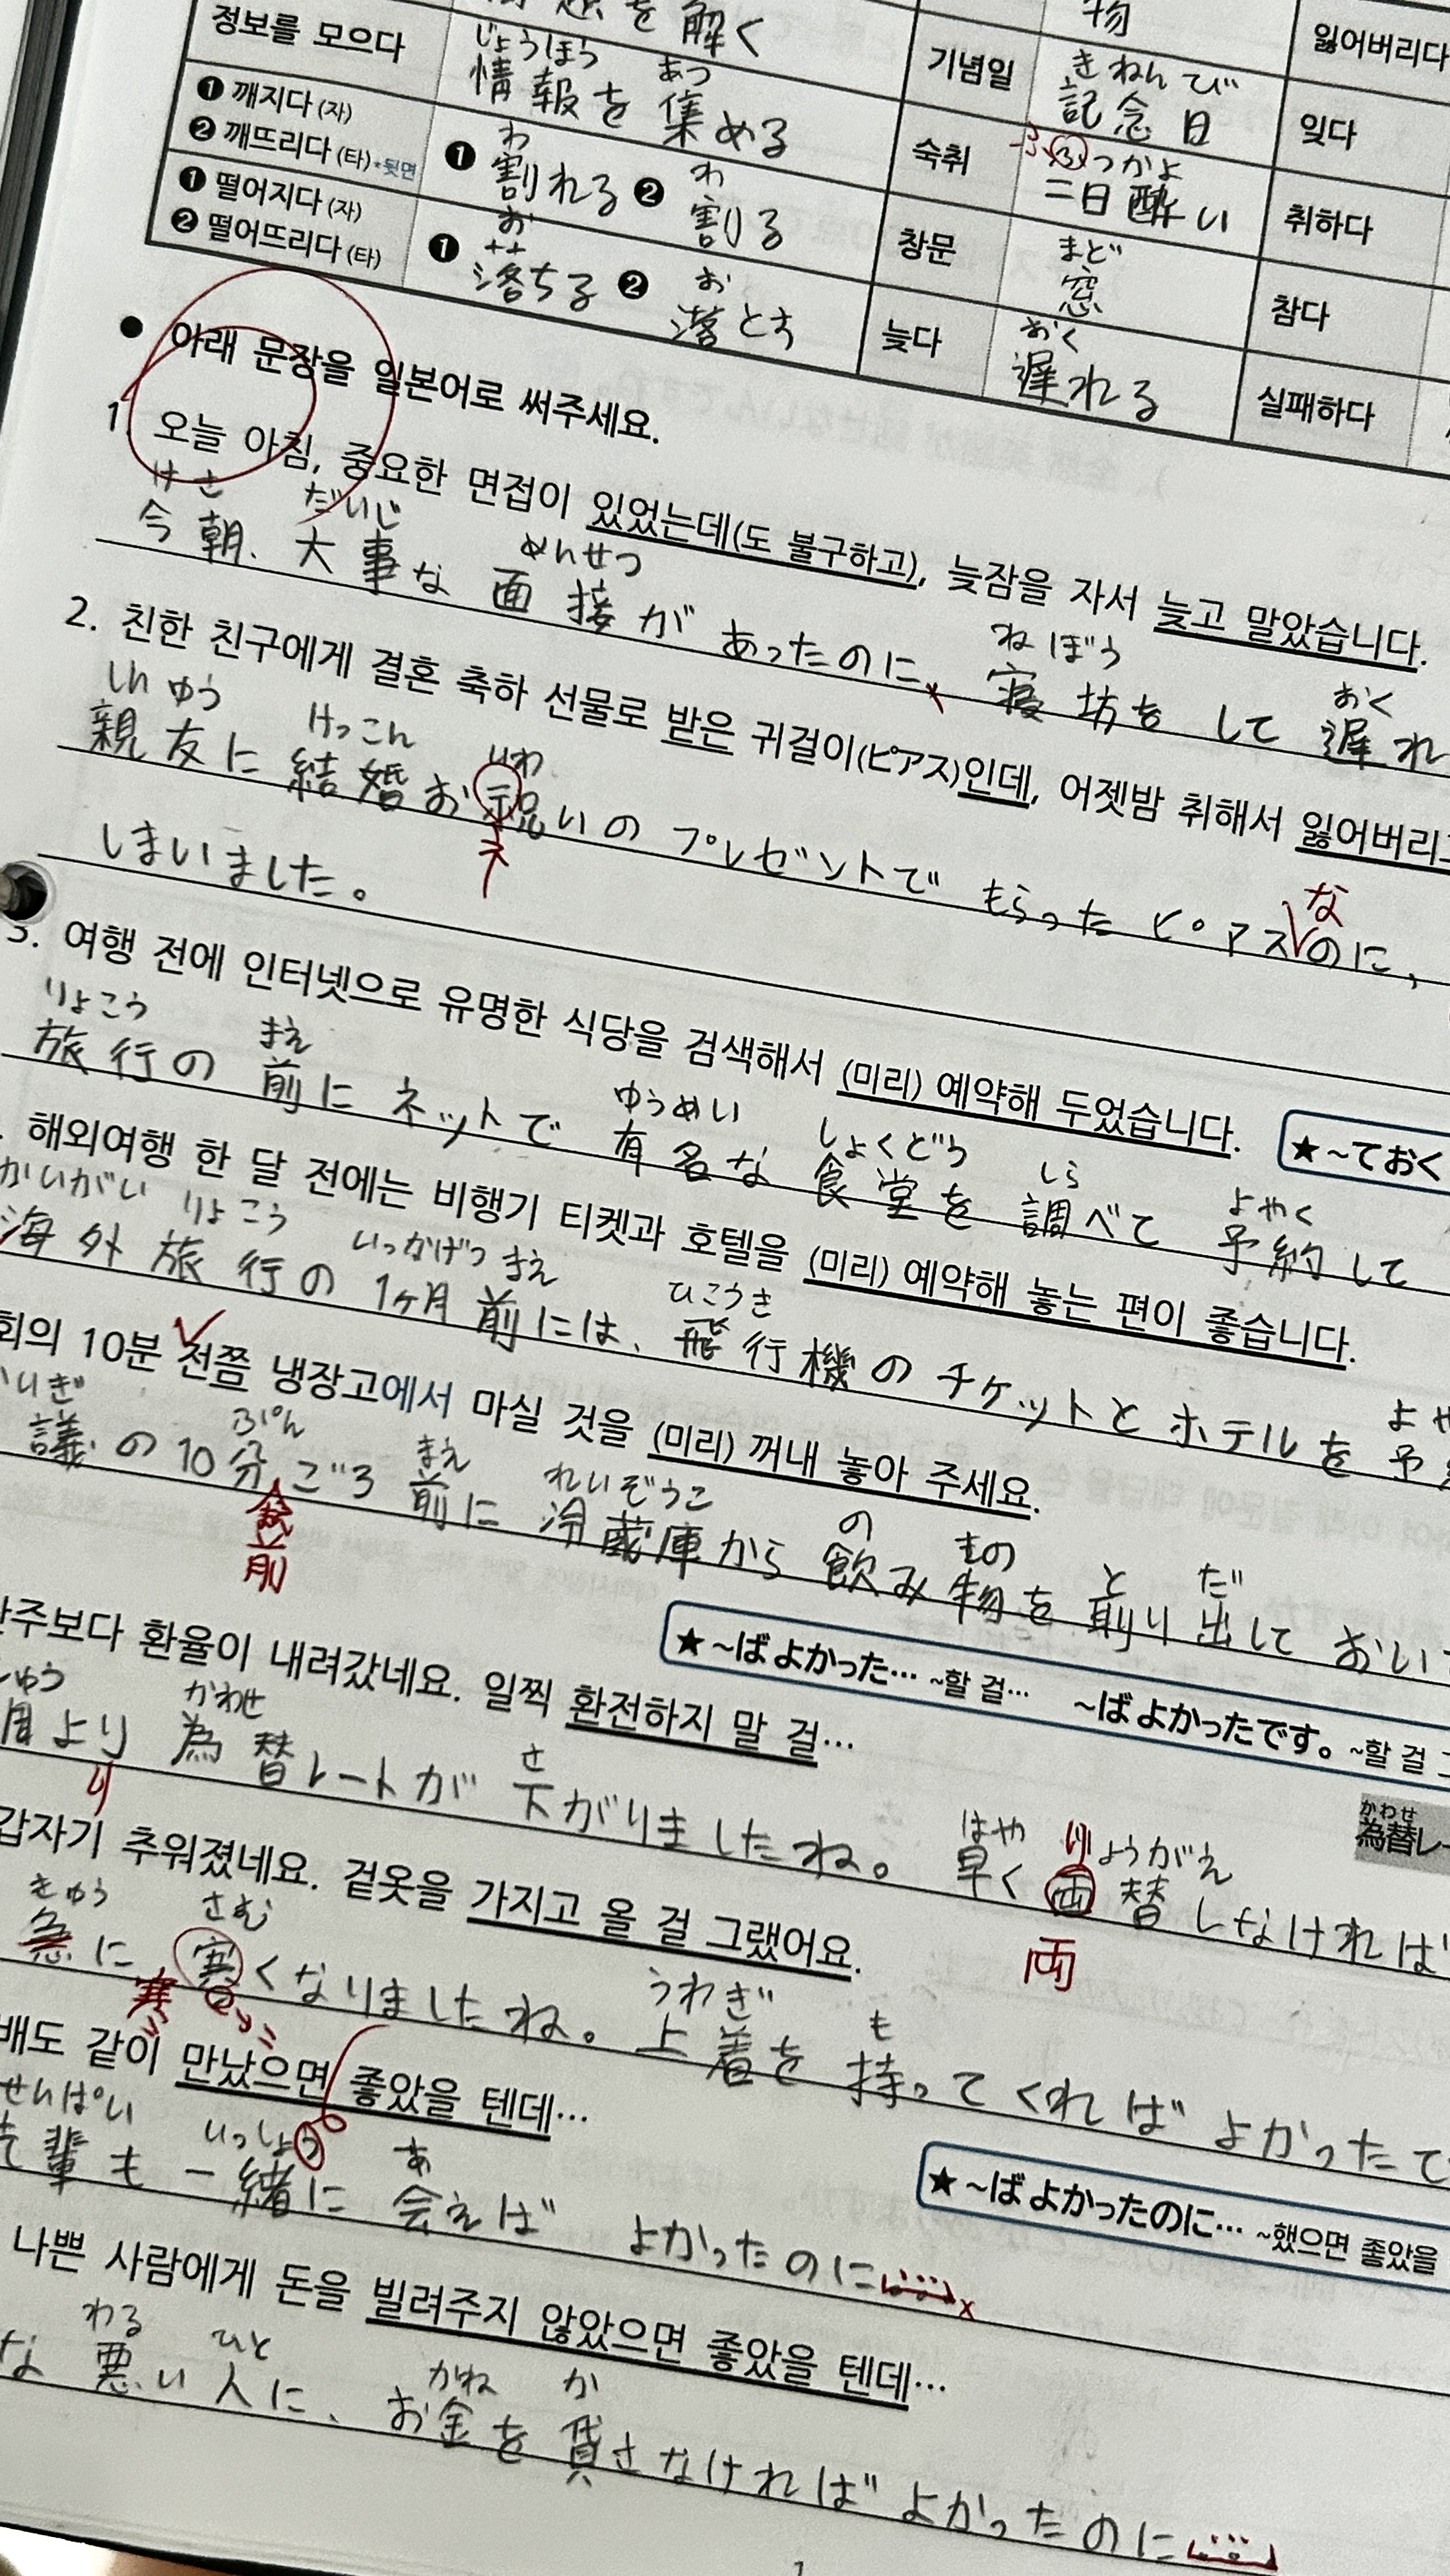 を解く
物
잃어버리다
정보를 모으다
じょうほう あつ
情報を集める
기념일
きねんび
記念日
잊다
❶ 깨지다 (자)
❷ 깨뜨리다 (타) *뒷면
❶ わ
割れる ❷ わ
割る
숙취
ふつかよ
二日酔い
취하다
❶ 떨어지다 (자)
❷ 떨어뜨리다 (타)
❶ お
落ちる ❷ お
落とす
창문
まど
窓
참다
늦다
おく
遅れる
실패하다
● 아래 문장을 일본어로 써주세요.
1. 오늘 아침, 중요한 면접이 있었는데(도 불구하고), 늦잠을 자서 늦고 말았습니다.
けさ だいじ めんせつ ねぼう おく
今朝、大事な面接があったのに、寝坊をして遅れ
2. 친한 친구에게 결혼 축하 선물로 받은 귀걸이(ピアス)인데, 어젯밤 취해서 잃어버리고
しんゆう けっこん いわ な
親友に結婚お祝いのプレゼントでもらったピアスのに、
ネ
しまいました。
3. 여행 전에 인터넷으로 유명한 식당을 검색해서 (미리) 예약해 두었습니다.
★~ておく
りょこう まえ ゆうめい しょくどう しら よやく
旅行の前にネットで有名な食堂を調べて予約して
해외여행 한 달 전에는 비행기 티켓과 호텔을 (미리) 예약해 놓는 편이 좋습니다.
かいがい りょこう いっかげつ まえ ひこうき よや
海外旅行の1ヶ月前には、飛行機のチケットとホテルを予
회의 10분 전쯤 냉장고에서 마실 것을 (미리) 꺼내 놓아 주세요.
いぎ ぷん まえ れいぞうこ の もの と だ
議の10分ごろ前に冷蔵庫から飲み物を取り出しておいて
前
주보다 환율이 내려갔네요. 일찍 환전하지 말 걸…
★~ばよかった… ~할 걸… ~ばよかったです。~할 걸 그
しゅう かわせ さ はや りょうがえ
週より為替レートが下がりましたね。早く両替しなければ
り
両
かわせ
為替レー
갑자기 추워졌네요. 겉옷을 가지고 올 걸 그랬어요.
きゅう さむ うわぎ も
急に寒くなりましたね。上着を持ってくればよかったで
寒
배도 같이 만났으면 좋았을 텐데…
★~ばよかったのに… ~했으면 좋았을
せんぱい いっしょう あ
先輩も一緒に会えばよかったのに……
나쁜 사람에게 돈을 빌려주지 않았으면 좋았을 텐데…
わる ひと かね か
な悪い人に、お金を貸さなければよかったのに……